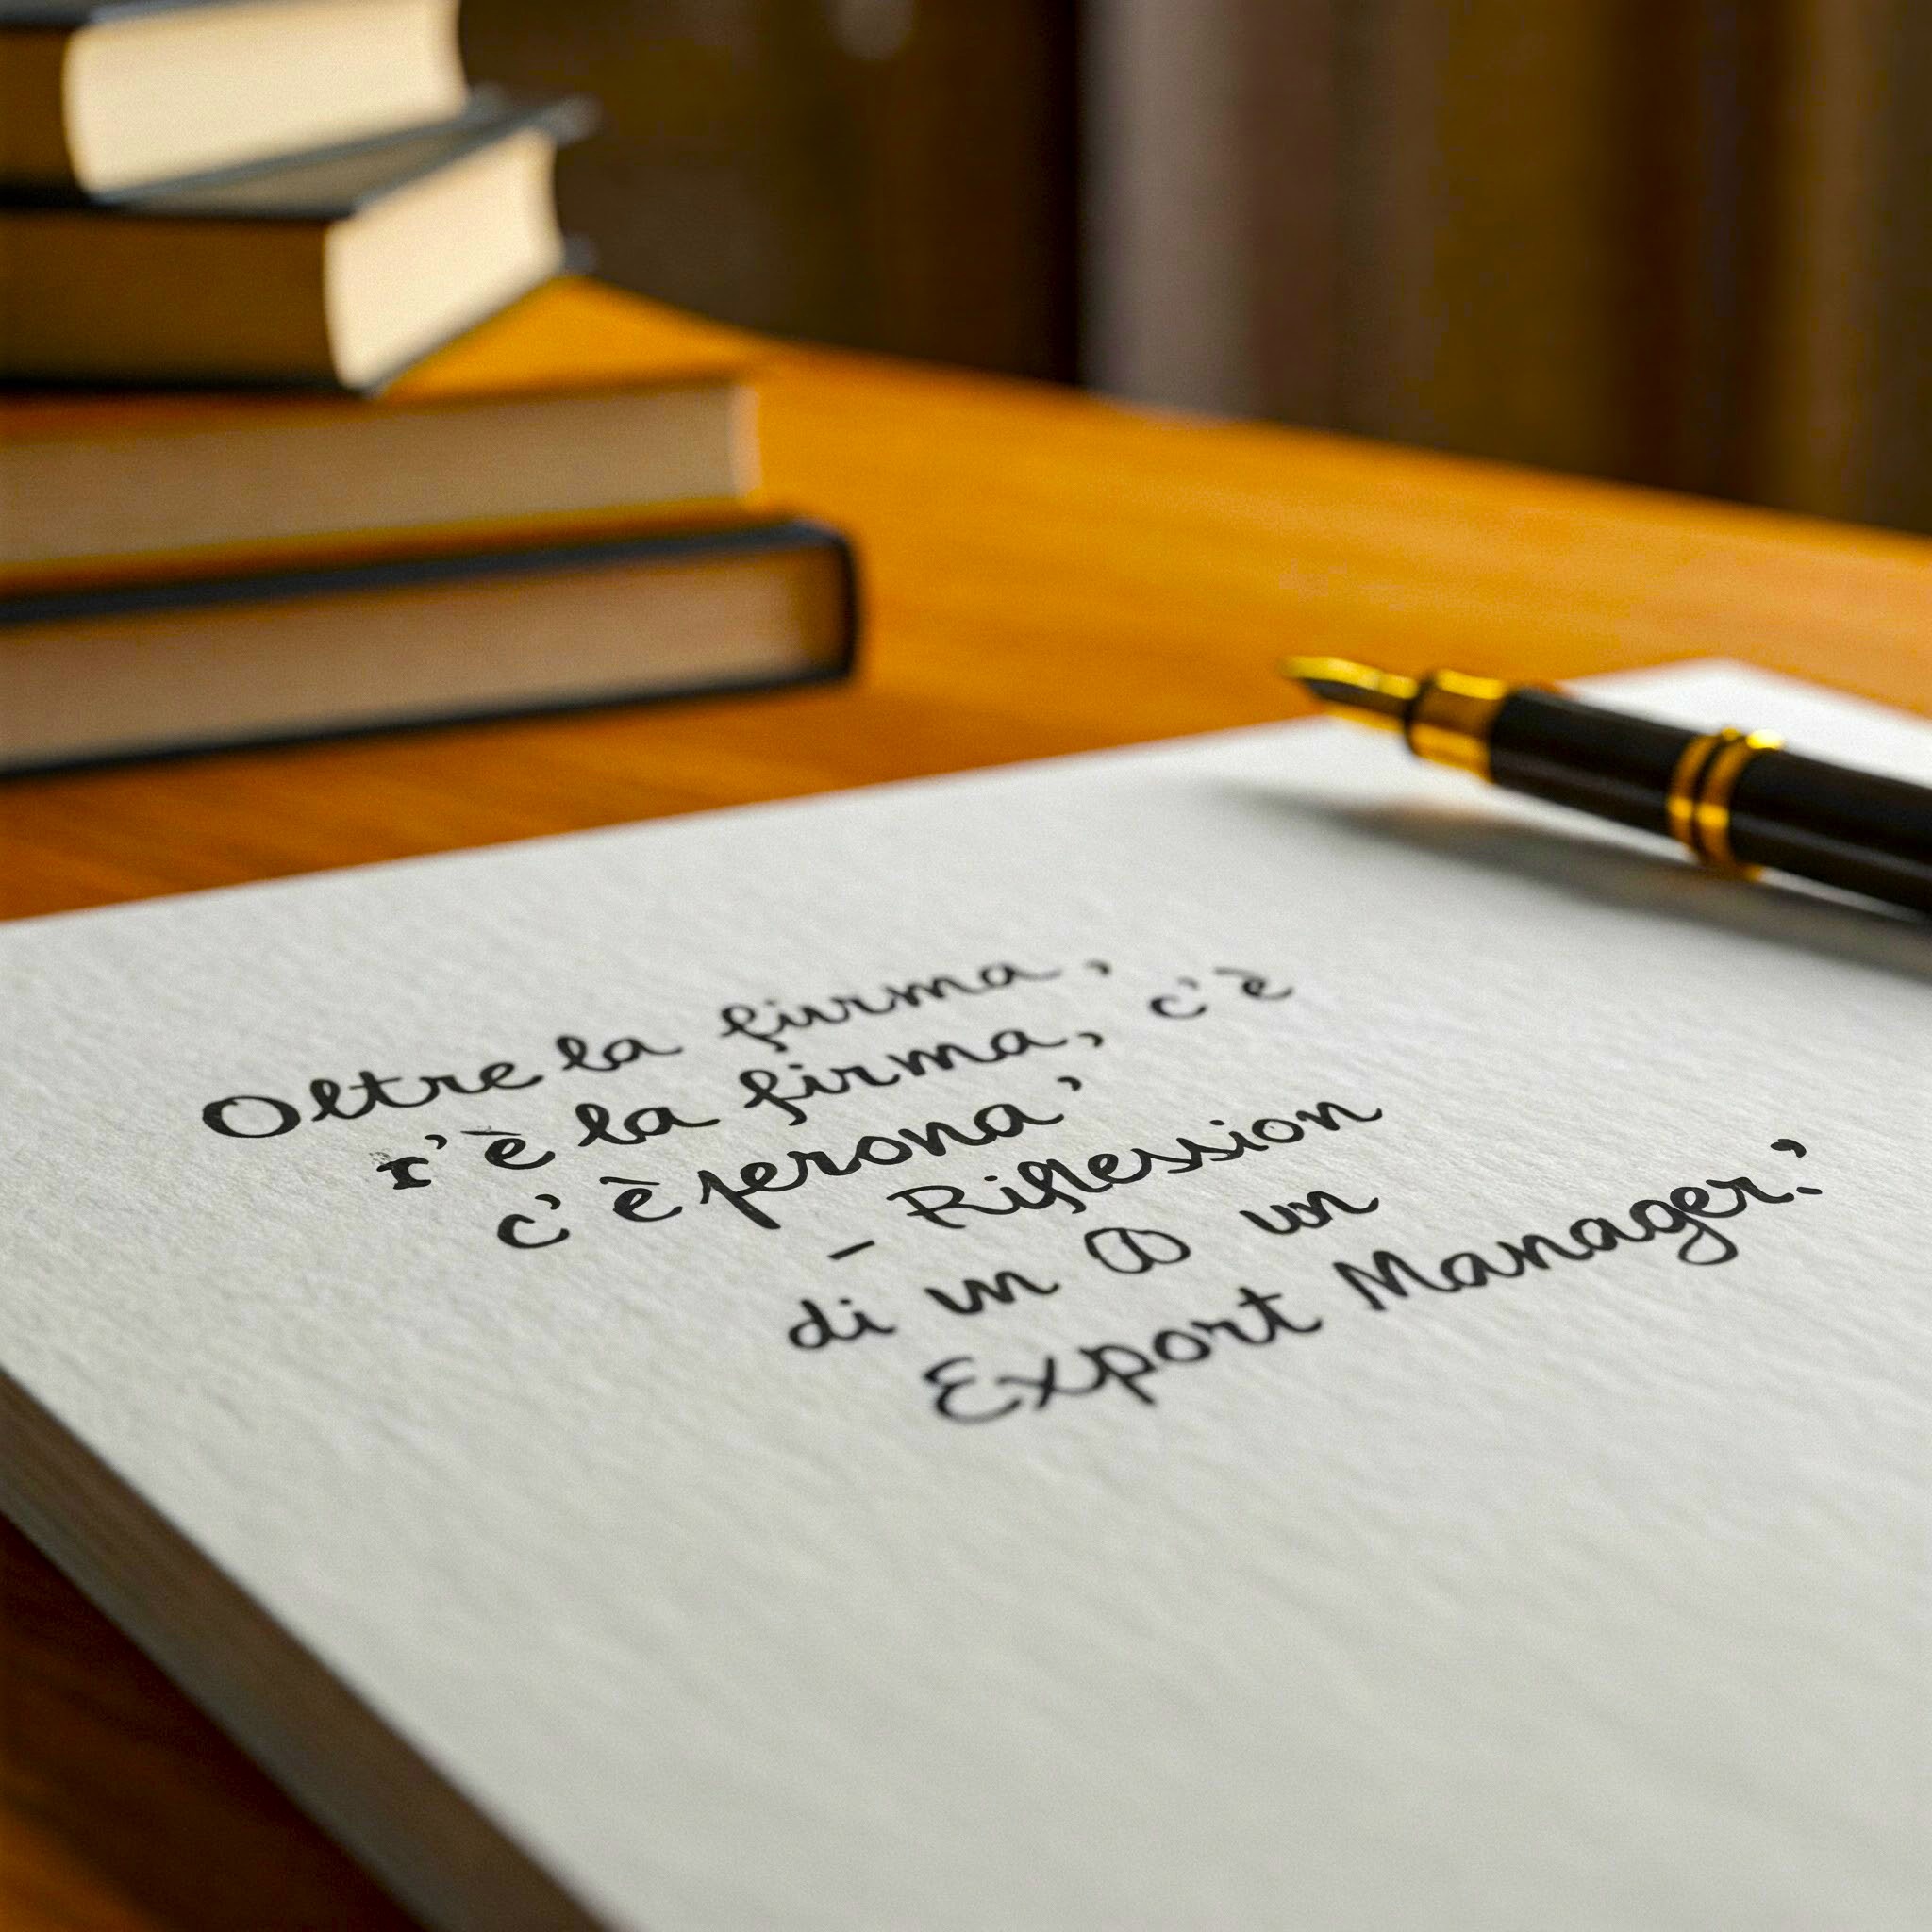 Oltre la firma,
r'è la firma, c'è
c'è perona'
– Riflession
di un un
Export Manager.'